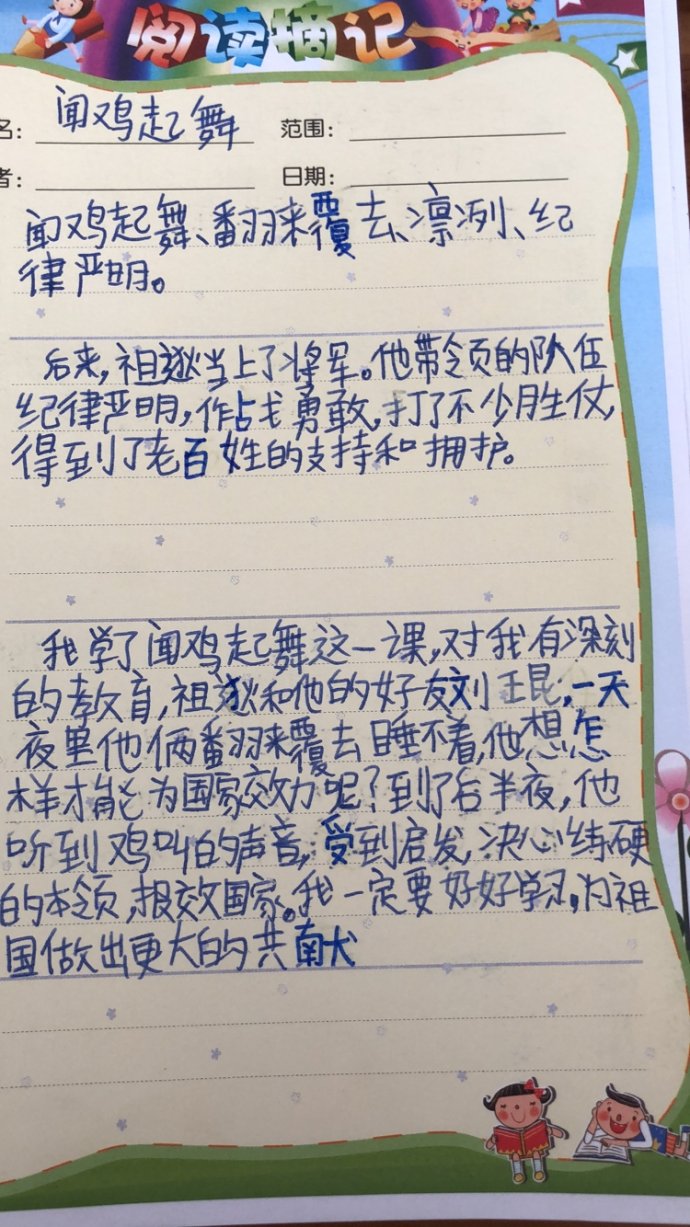 阅读摘记
名：闻鸡起舞 范围：
者： 日期：
闻鸡起舞、翻来覆去、凛冽、纪
律严明。
后来，祖逖当上了将军。他带令页的队伍
纪律严明，作战勇敢，打了不少胜仗，
得到了老百姓的支持和拥护。
我学了闻鸡起舞这一课，对我有深刻
的教育，祖逖和他的好友刘王昆，一天
夜里他俩翻来覆去睡不着，他想怎
样才能为国家效力呢？到了后半夜，他
听到鸡叫的声音，受到启发，决心练硬
的本领，报效国家。我一定要好好学习，为祖
国做出更大的共献